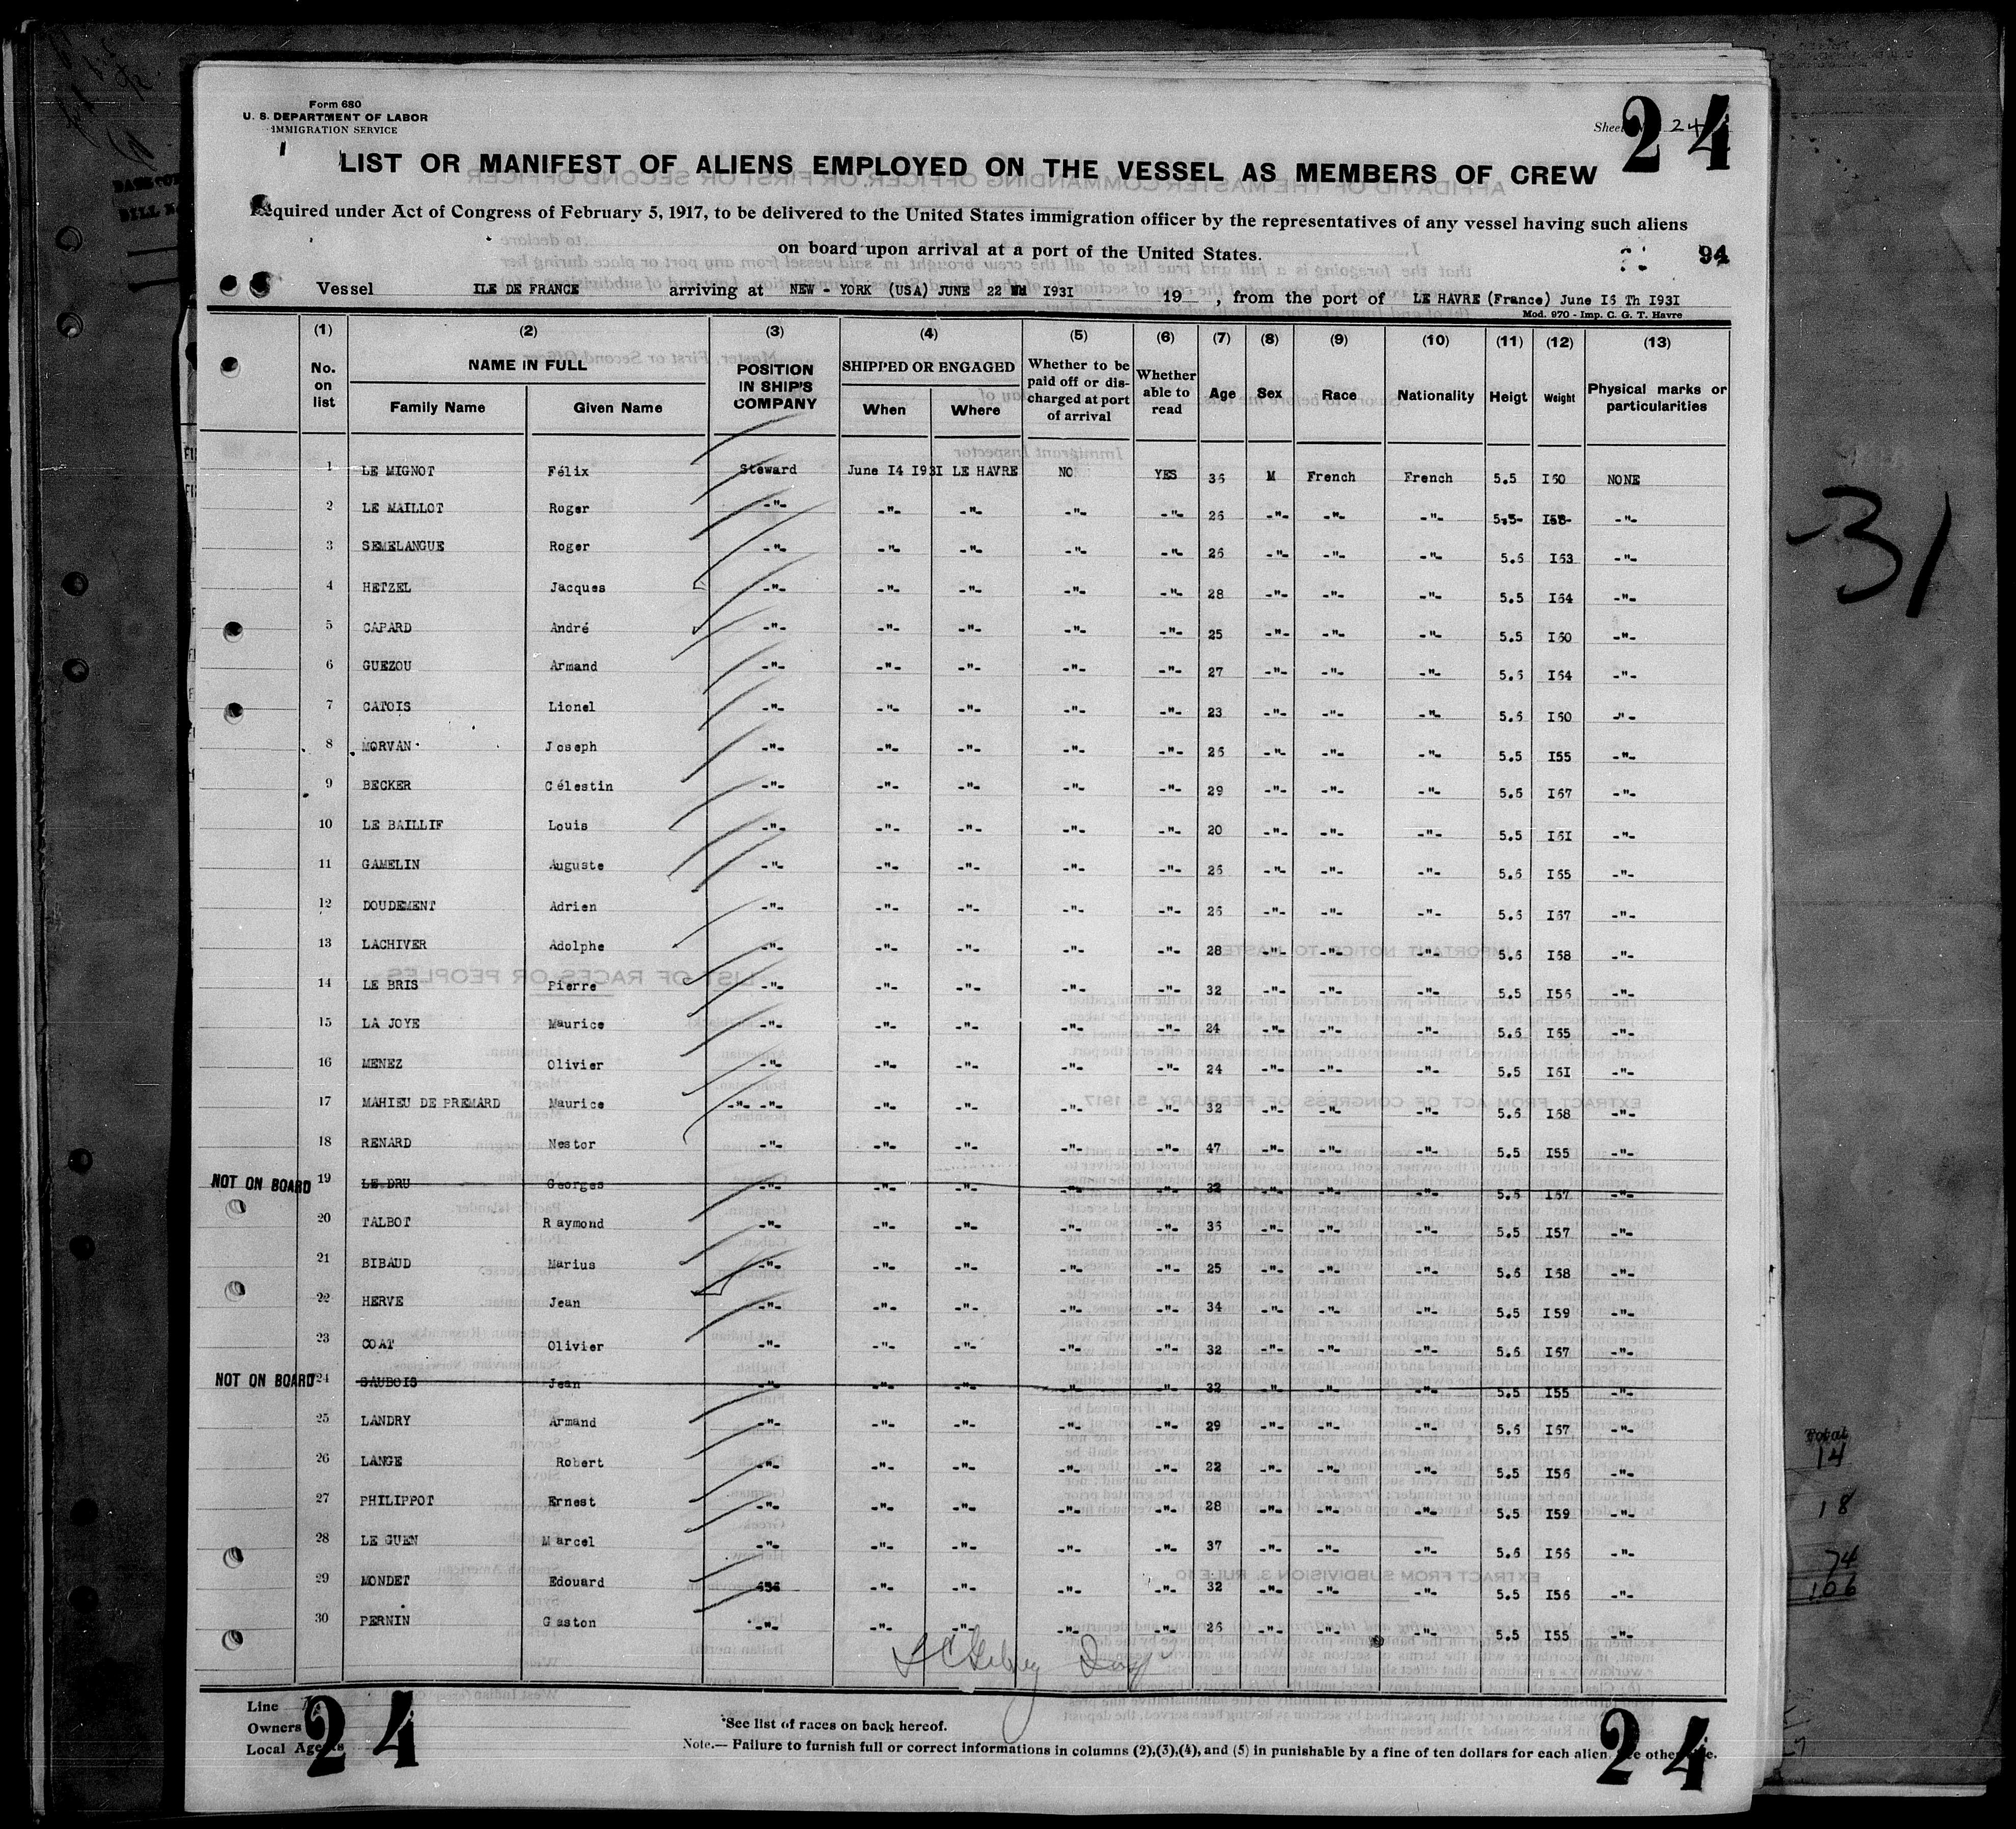 Form 680
U. S. DEPARTMENT OF LABOR
IMMIGRATION SERVICE
Sheet 24
24
LIST OR MANIFEST OF ALIENS EMPLOYED ON THE VESSEL AS MEMBERS OF CREW
Required under Act of Congress of February 5, 1917, to be delivered to the United States immigration officer by the representatives of any vessel having such aliens
on board upon arrival at a port of the United States.
94
Vessel ILE DE FRANCE arriving at NEW - YORK (USA) JUNE 22 1931 19 , from the port of LE HAVRE (France) June 15 Th I93I
Mod. 970 - Imp. C. G. T. Havre
(1) (2) (3) (4) (5) (6) (7) (8) (9) (10) (11) (12) (13)
No. on list NAME IN FULL Family Name Given Name POSITION IN SHIP'S COMPANY SHIPPED OR ENGAGED When Where Whether to be paid off or discharged at port of arrival Whether able to read Age Sex Race Nationality Heigt Weight Physical marks or particularities
1 LE MIGNOT Félix Steward June I4 I93I LE HAVRE NO YES 36 M French French 5.5 I60 NONE
2 LE MAILLOT Roger -"- -"- -"- -"- -"- 26 -"- -"- -"- 5.5- I58- -"-
3 SEMELANGUE Roger -"- -"- -"- -"- -"- 26 -"- -"- -"- 5.6 I63 -"-
4 HETZEL Jacques -"- -"- -"- -"- -"- 28 -"- -"- -"- 5.5 I64 -"-
5 CAPARD André -"- -"- -"- -"- -"- 25 -"- -"- -"- 5.5 I60 -"-
6 GUEZOU Armand -"- -"- -"- -"- -"- 27 -"- -"- -"- 5.6 I64 -"-
7 CATOIS Lionel -"- -"- -"- -"- -"- 23 -"- -"- -"- 5.6 I60 -"-
8 MORVAN Joseph -"- -"- -"- -"- -"- 26 -"- -"- -"- 5.5 I55 -"-
9 BECKER Célestin -"- -"- -"- -"- -"- 29 -"- -"- -"- 5.6 I67 -"-
10 LE BAILLIF Louis -"- -"- -"- -"- -"- 20 -"- -"- -"- 5.5 I6I -"-
11 GAMELIN Auguste -"- -"- -"- -"- -"- 26 -"- -"- -"- 5.6 I65 -"-
12 DOUDEMENT Adrien -"- -"- -"- -"- -"- 26 -"- -"- -"- 5.6 I67 -"-
13 LACHIVER Adolphe -"- -"- -"- -"- -"- 28 -"- -"- -"- 5.6 I68 -"-
14 LE BRIS Pierre -"- -"- -"- -"- -"- 32 -"- -"- -"- 5.5 I56 -"-
15 LA JOYE Maurice -"- -"- -"- -"- -"- 24 -"- -"- -"- 5.6 I65 -"-
16 MENEZ Olivier -"- -"- -"- -"- -"- 24 -"- -"- -"- 5.5 I6I -"-
17 MAHIEU DE PREMARD Maurice -"- -"- -"- -"- -"- -"- 32 -"- -"- -"- 5.6 I68 -"-
18 RENARD Nestor -"- -"- -"- -"- -"- 47 -"- -"- -"- 5.5 I55 -"-
NOT ON BOARD 19 LE DRU Georges -"- -"- -"- -"- -"- 32 -"- -"- -"- 5.6 I67 -"-
20 TALBOT Raymond -"- -"- -"- -"- -"- 36 -"- -"- -"- 5.5 I57 -"-
21 BIBAUD Marius -"- -"- -"- -"- -"- 25 -"- -"- -"- 5.6 I68 -"-
22 HERVE Jean -"- -"- -"- -"- -"- 34 -"- -"- -"- 5.5 I59 -"-
23 COAT Olivier -"- -"- -"- -"- -"- 32 -"- -"- -"- 5.6 I67 -"-
NOT ON BOARD 24 SAUBOIS Jean -"- -"- -"- -"- -"- 32 -"- -"- -"- 5.5 I55 -"-
25 LANDRY Armand -"- -"- -"- -"- -"- 29 -"- -"- -"- 5.6 I67 -"-
26 LANGE Robert -"- -"- -"- -"- -"- 22 -"- -"- -"- 5.5 I56 -"-
27 PHILIPPOT Ernest -"- -"- -"- -"- -"- 28 -"- -"- -"- 5.5 I59 -"-
28 LE GUEN Marcel -"- -"- -"- -"- -"- 37 -"- -"- -"- 5.6 I66 -"-
29 MONDET Edouard -"- -"- -"- -"- 32 -"- -"- -"- 5.5 I56 -"-
30 PERNIN Gaston -"- -"- -"- -"- -"- 26 -"- -"- -"- 5.5 I55 -"-
Line
Owners
Local Agents
24
*See list of races on back hereof.
Note.— Failure to furnish full or correct informations in columns (2),(3),(4), and (5) in punishable by a fine of ten dollars for each alien. See otherside.
24
31
Total
14
18
74
106